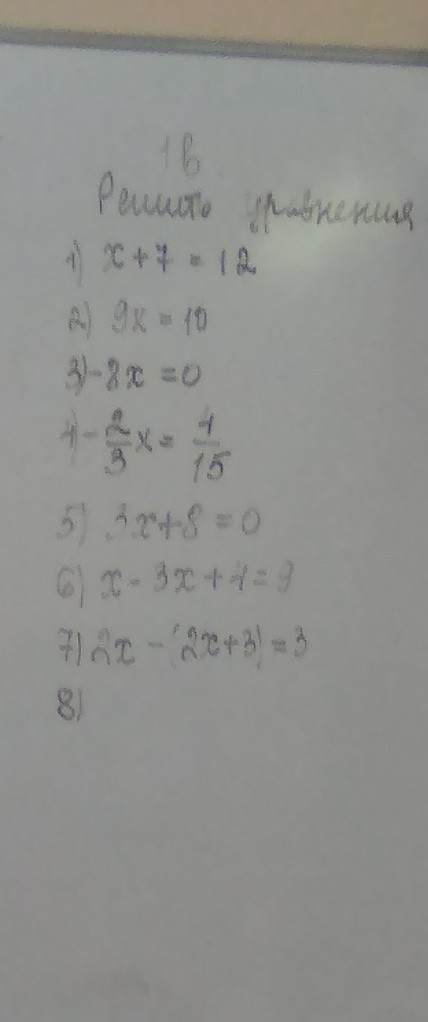 1в
Решить уравнения
1) x + 7 = 12
2) 9x = 10
3) -8x = 0
4) -2/3 x = 4/15
5) 3x + 8 = 0
6) x - 3x + 4 = 9
7) 2x - (2x + 3) = 3
8)